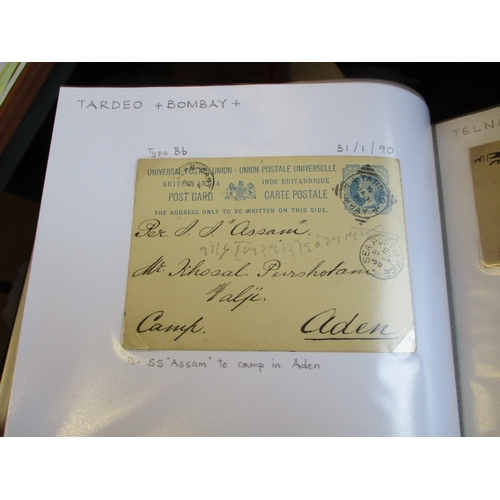 TARDEO + BOMBAY +
TELN
Type Bb
31/1/90
UNIVERSAL POSTAL UNION - UNION POSTALE UNIVERSELLE
BRITISH INDIA
INDE BRITANNIQUE
POST CARD
CARTE POSTALE
THE ADDRESS ONLY TO BE WRITTEN ON THIS SIDE.
Per. S. S "Assam".
Mr. Khossal Purshotam
Valji.
Camp.
Aden
Per SS "Assam" to camp in Aden